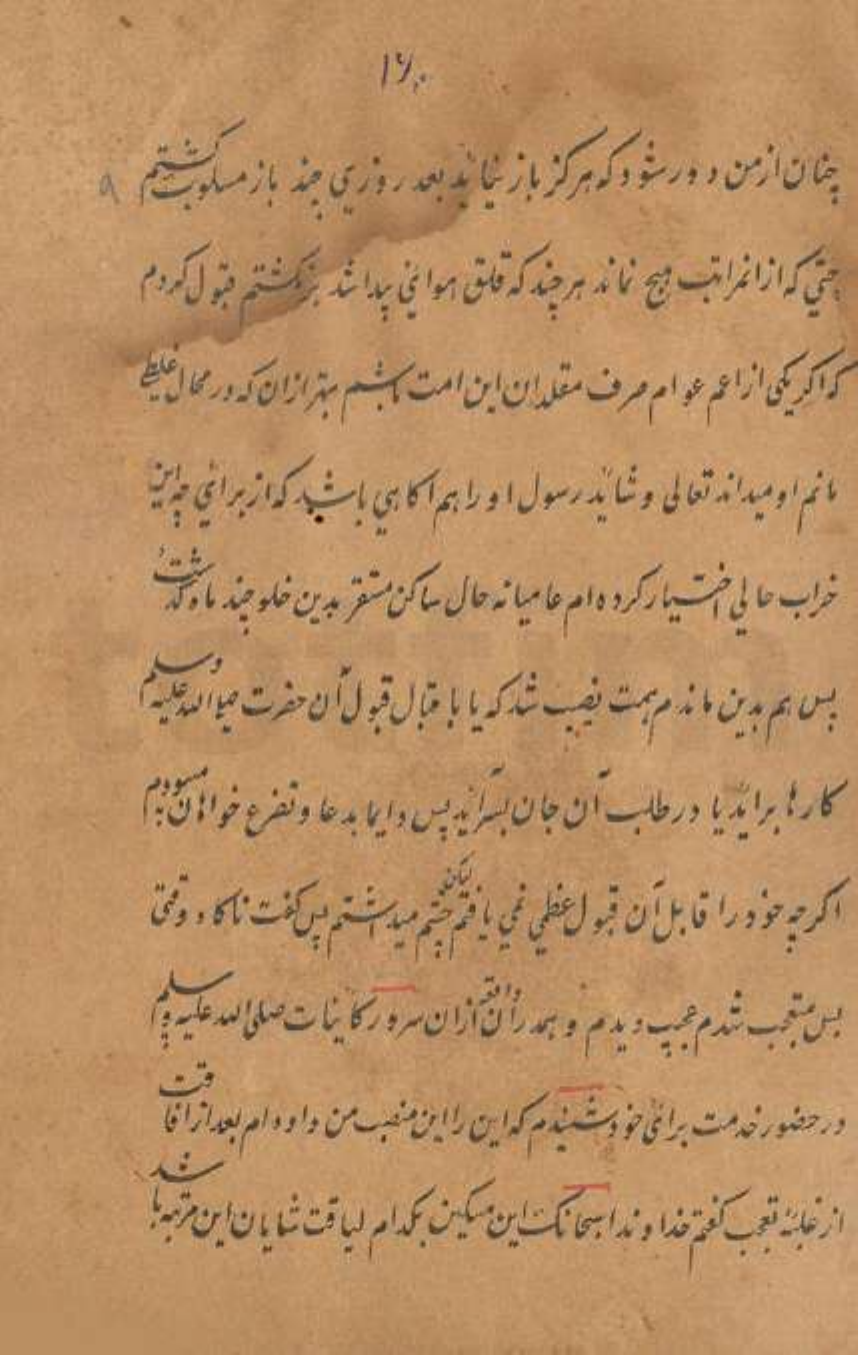 ۱۶۰
چنان از من دور شود که هرکز باز نیاید بعد روزی چند باز مسلوب کشتم
حتی که از انمراتب هیچ نماند هر چند که قلق هوائی پیدا شد برکشتم قبول کردم
که اکر یکی از اعم عوام صرف مقلدان این امت باشم بهتر ازان که در محال غلیظی
مانم او میداند تعالی و شاید رسول او را هم اکاهی باشد که از برائی چه این
خراب حالی اختیار کرده ام عامیانه حال ساکن مستقر بدین خلو چند ماه کذشت
پس هم بدین ماندم همت نصب شد که یا با قبال قبول آن حضرت صلی الله علیه وسلم
کارها براید یا در طلب آن جان بسرآید پس دایما بدعا و تضرع خواهان میبودم
اکرچه خود را قابل آن قبول عظمی نمی یافتم لیکن چشم میداشتم پس کفت ناکاه وقتی
بس متعجب شدم عجیب دیدم و همدران واقعه ازان سرور کاینات صلی الله علیه وسلم
در حضور خدمت برائی خود شنیدم که این را این منصب من داده ام بعد از افاقت
از غلبهٔ تعجب کفتم خداوندا سبحانک این مسکین بکدام لیاقت شایان این مرتبه باشد